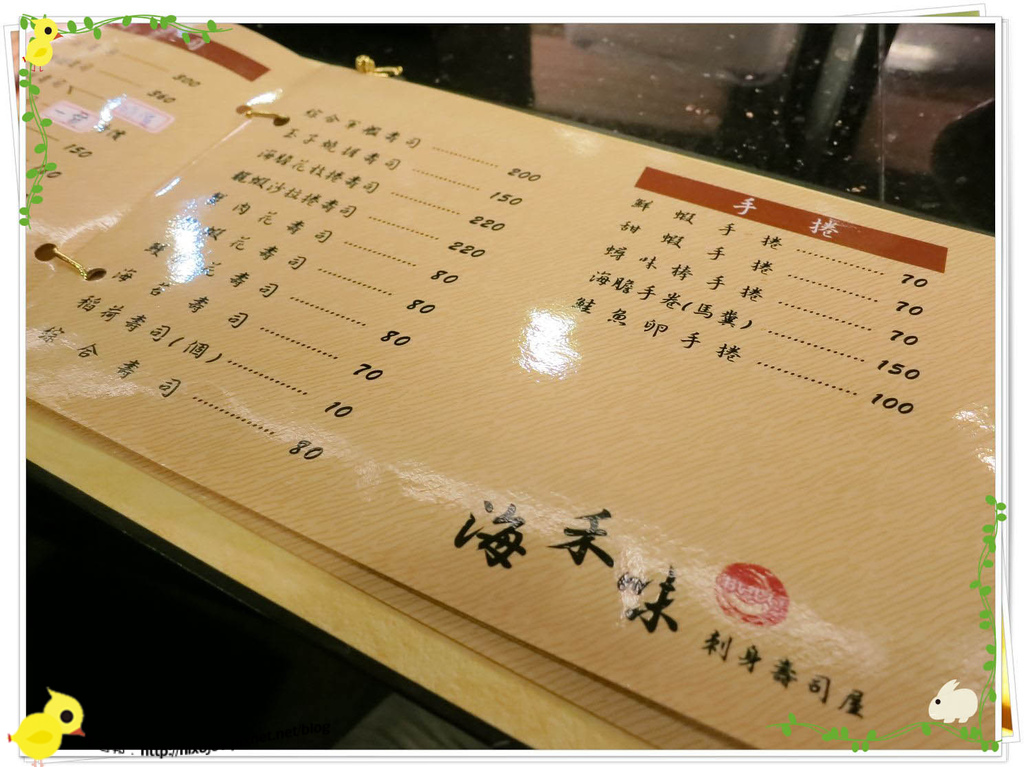 300
360
150
綜合軍艦壽司 200
玉子燒握壽司 150
海鮮花枝捲壽司 220
龍蝦沙拉捲壽司 220
蟹肉花壽司 80
蝦花壽司 80
花壽司 80
海苔壽司 70
稻荷壽司(個) 10
綜合壽司 80
手捲
鮮蝦手捲 70
甜蝦手捲 70
蟳味棒手捲 70
海膽手卷(馬糞) 150
鮭魚卵手捲 100
海禾味
刺身壽司屋